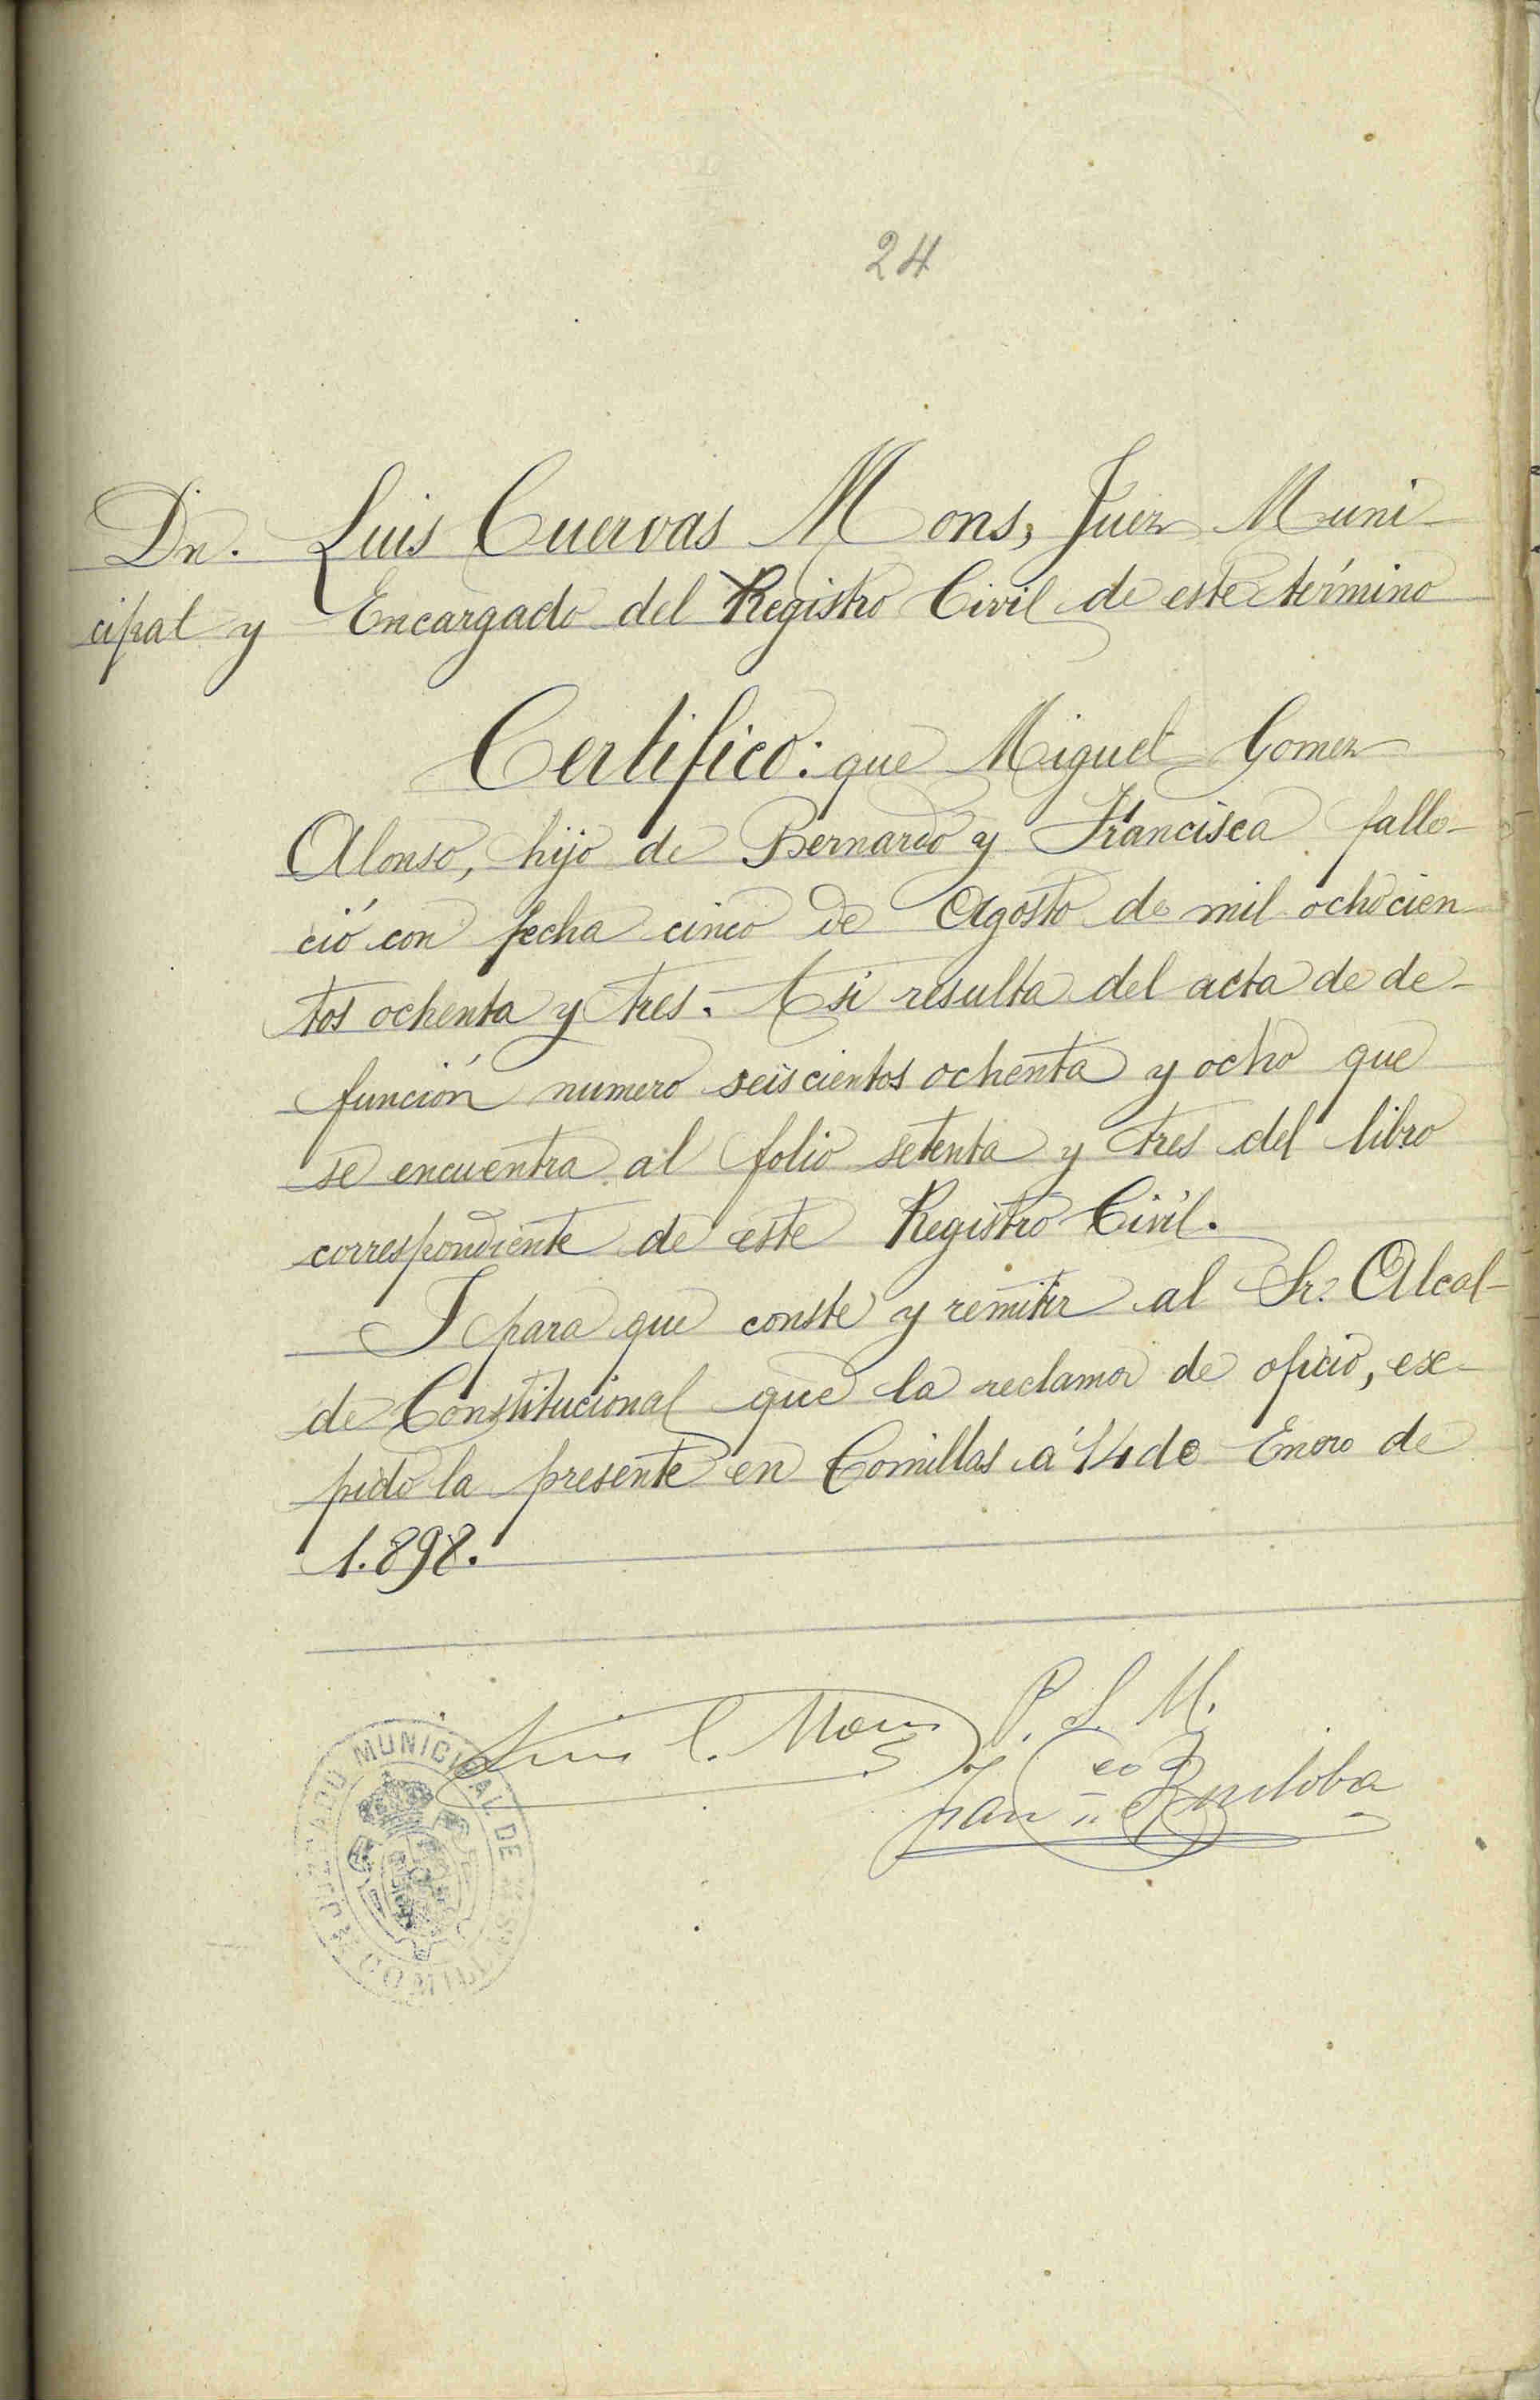 24
Dn. Luis Cuervas Mons, Juez Muni-
cipal y Encargado del Registro Civil de este término
Certifico: que Miguel Gomez
Alonso, hijo de Bernardo y Francisca falle-
ció con fecha cinco de Agosto de mil ochocien-
tos ochenta y tres. Asi resulta del acta de de-
función numero seiscientos ochenta y ocho que
se encuentra al folio setenta y tres del libro
correspondiente de este Registro Civil.
Y para que conste y remitir al Sr. Alcal-
de Constitucional que la reclama de oficio, ex-
pido la presente en Comillas á 14 de Enero de
1.898.
P. S. M.
Luis C. Mons
JUZGADO MUNICIPAL DE COMILLAS